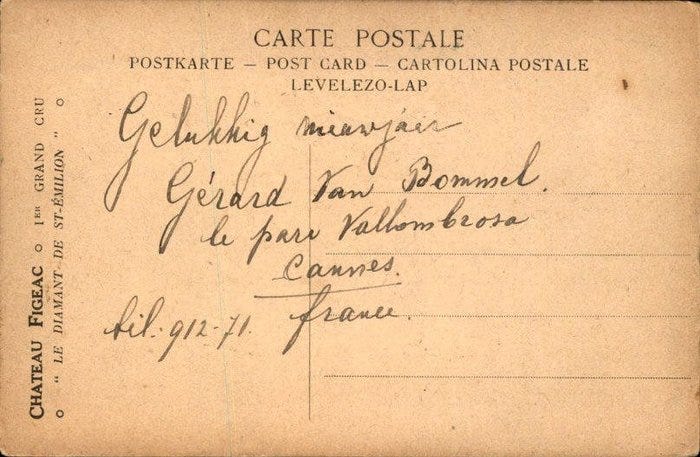 CARTE POSTALE
POSTKARTE – POST CARD – CARTOLINA POSTALE
LEVELEZO-LAP
CHATEAU FIGEAC o 1ER GRAND CRU
o " LE DIAMANT DE ST-ÉMILION " o
Gelukkig nieuwjaar
Gérard Van Bommel.
le parc Vallombrosa
Cannes.
france.
tél. 912-71.